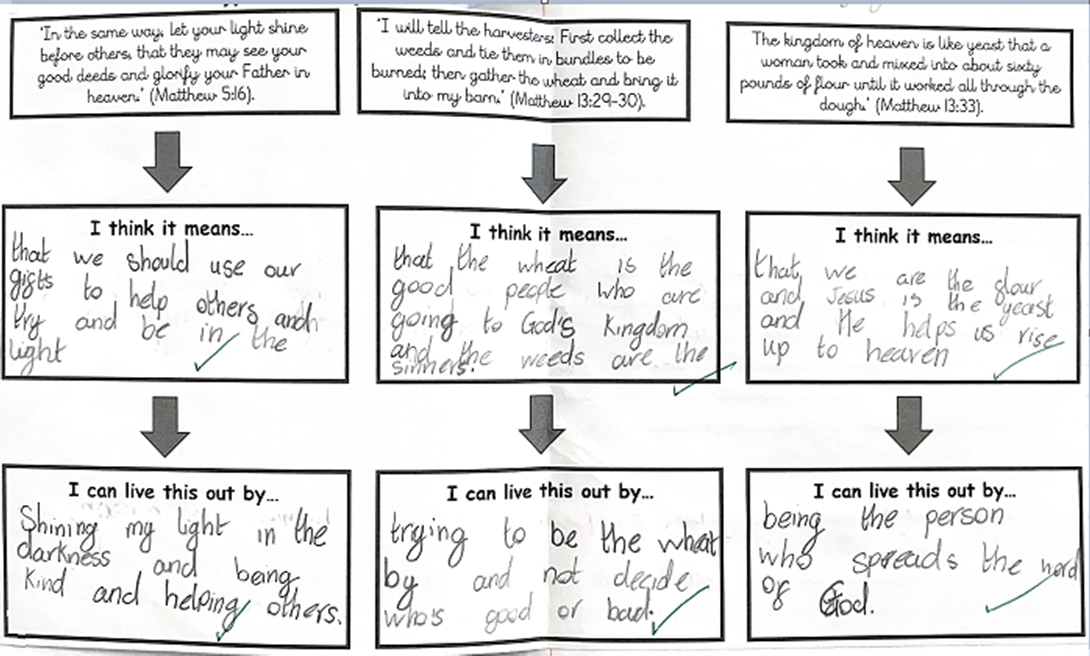 'In the same way, let your light shine
before others, that they may see your
good deeds and glorify your Father in
heaven.' (Matthew 5:16).
'I will tell the harvesters: First collect the
weeds and tie them in bundles to be
burned; then gather the wheat and bring it
into my barn.' (Matthew 13:29-30).
The kingdom of heaven is like yeast that a
woman took and mixed into about sixty
pounds of flour until it worked all through the
dough.' (Matthew 13:33).
I think it means...
that we should use our
gifts to help others and
try and be in the
light
I think it means...
that the wheat is the
good people who are
going to God's Kingdom
and the weeds are the
sinners.
I think it means...
that we are the flour
and Jesus is the yeast
and He helps us rise
up to heaven
I can live this out by...
Shining my light in the
darkness and being
kind and helping others.
I can live this out by...
trying to be the wheat
by and not decide
who's good or bad.
I can live this out by...
being the person
who spreads the word
of God.